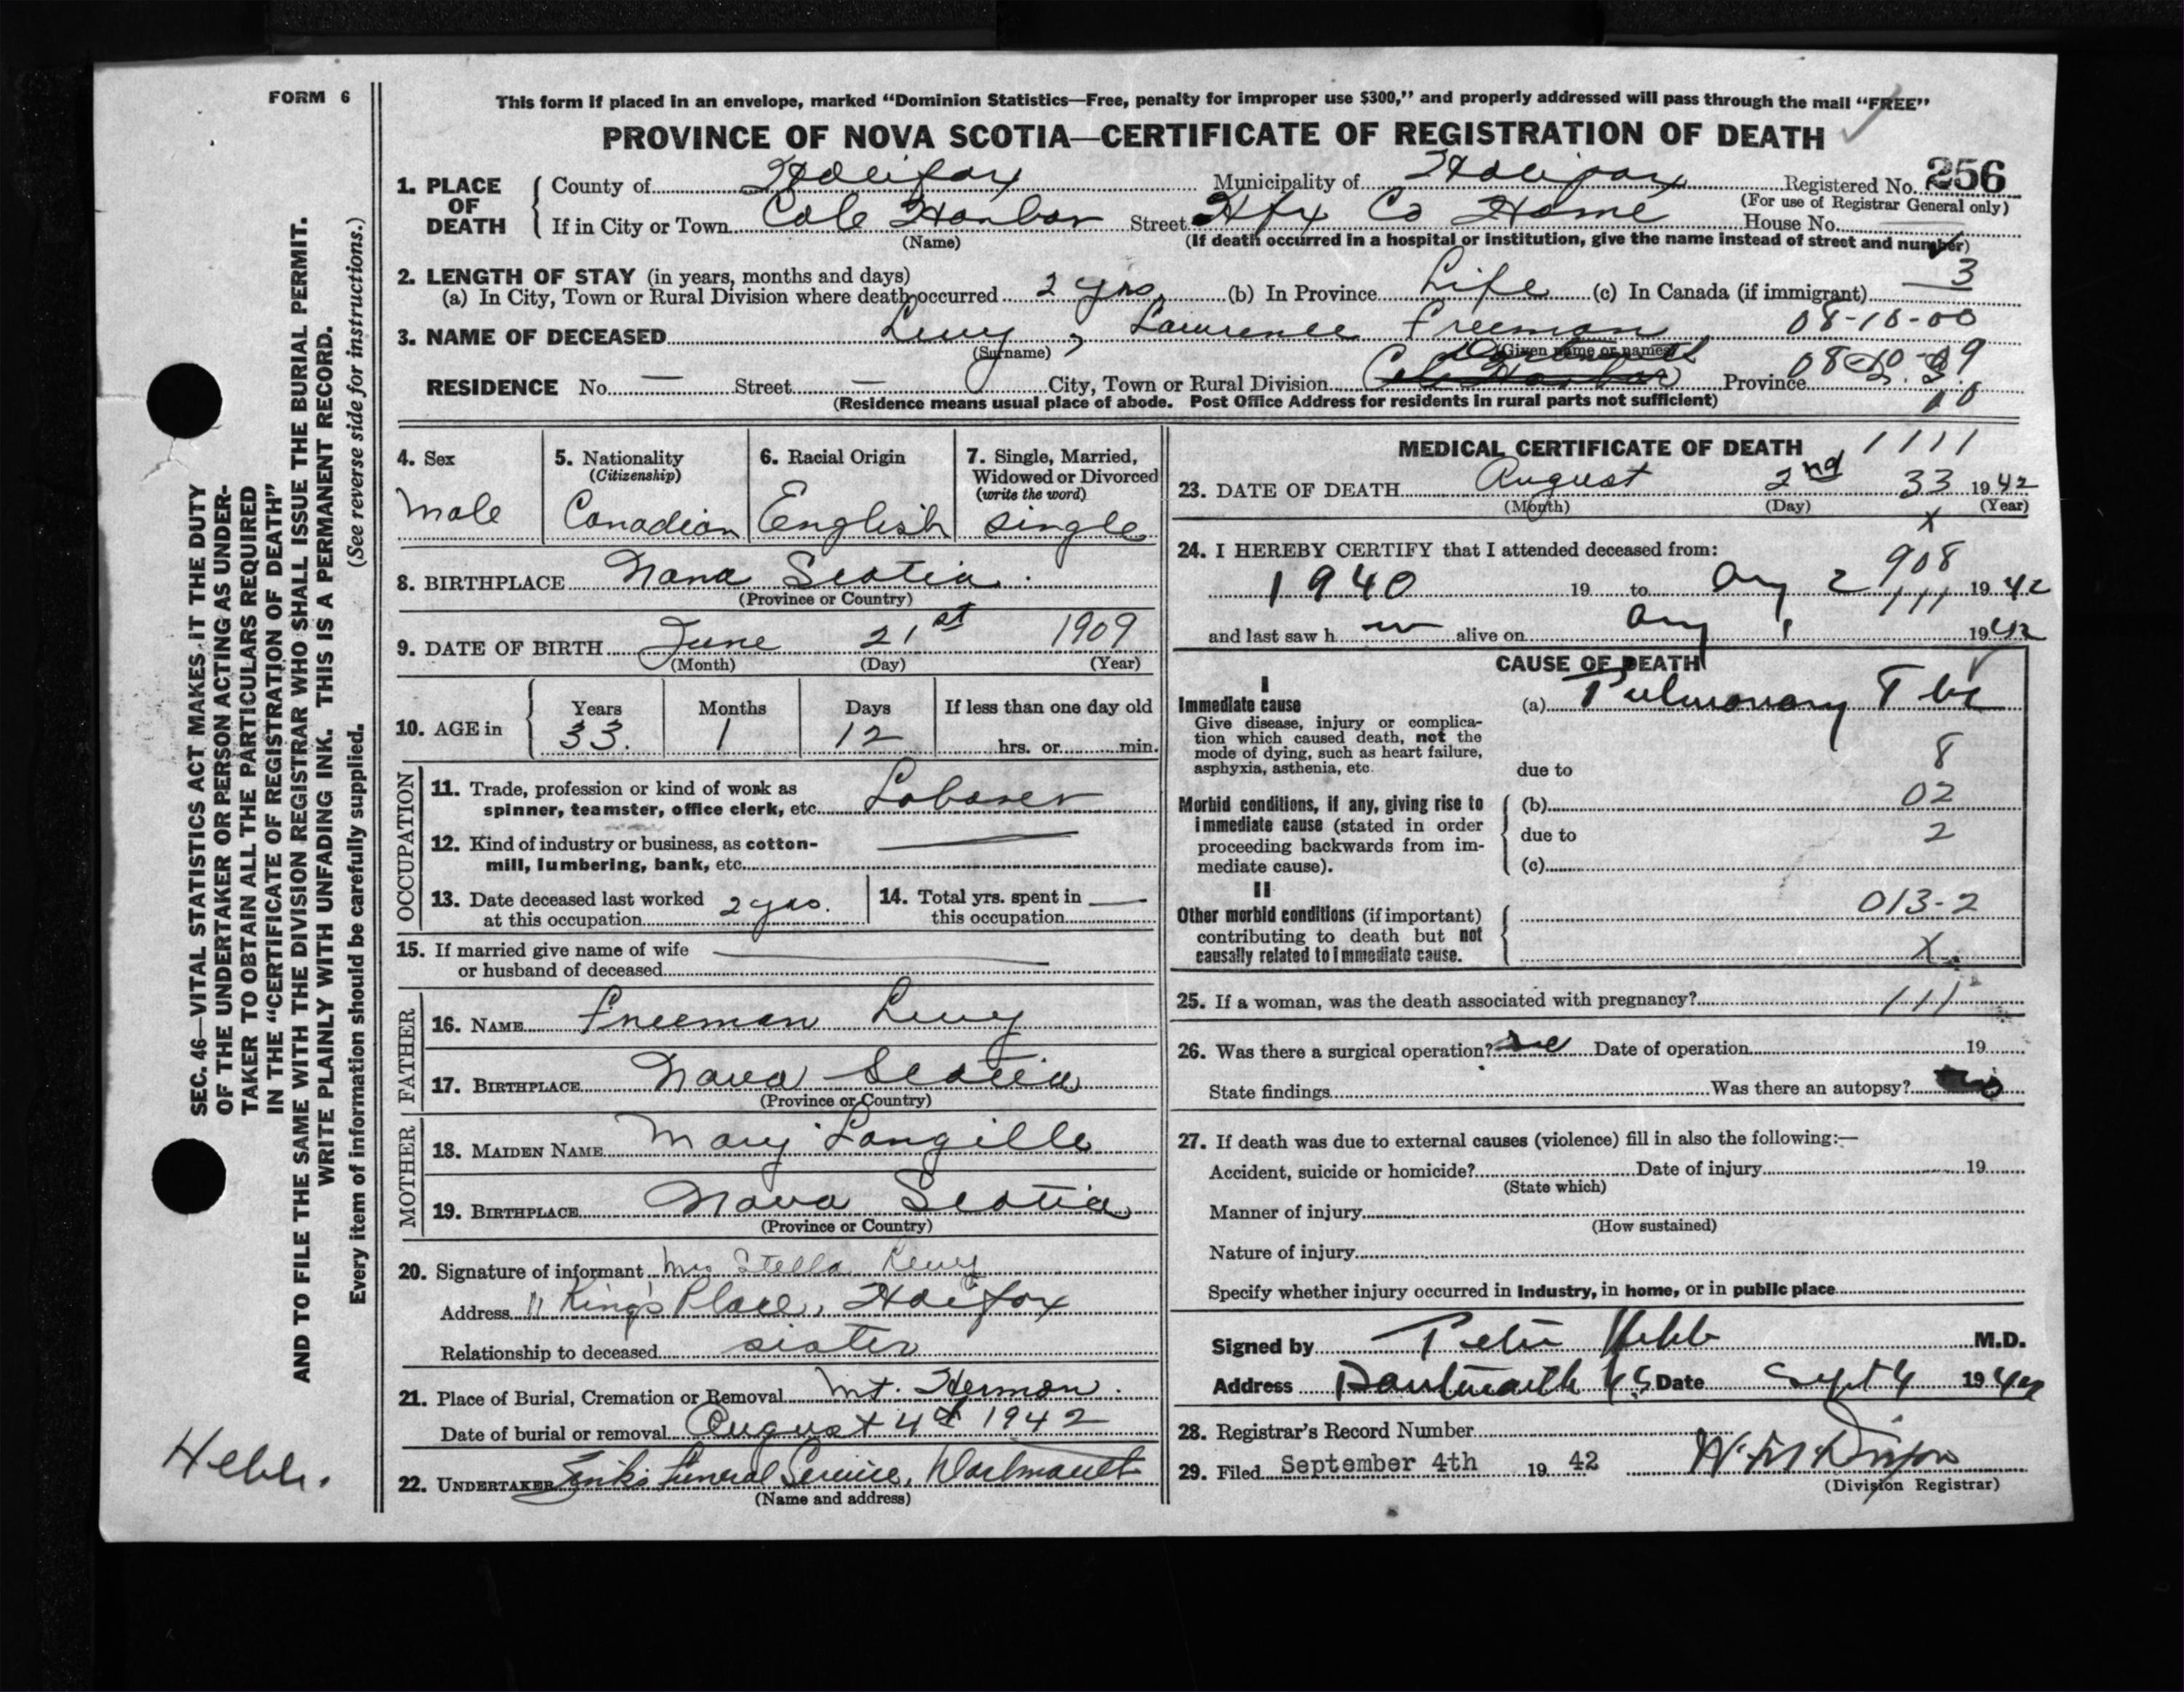 FORM 6
This form if placed in an envelope, marked “Dominion Statistics—Free, penalty for improper use $300,” and properly addressed will pass through the mail “FREE”
PROVINCE OF NOVA SCOTIA—CERTIFICATE OF REGISTRATION OF DEATH
1. PLACE OF DEATH
County of Halifax Municipality of Halifax Registered No. 256
(For use of Registrar General only)
If in City or Town Cole Harbor Street Hfx Co Home House No.
(Name) (If death occurred in a hospital or institution, give the name instead of street and number)
2. LENGTH OF STAY (in years, months and days) 3
(a) In City, Town or Rural Division where death occurred 2 yrs (b) In Province Life (c) In Canada (if immigrant)
08-10-00
3. NAME OF DECEASED Levy, Lawrence Freeman
(Surname) (Given name or names)
RESIDENCE No. — Street — City, Town or Rural Division Dartmouth Cole Harbor Province
(Residence means usual place of abode. Post Office Address for residents in rural parts not sufficient)
4. Sex
Male
5. Nationality
(Citizenship)
Canadian
6. Racial Origin
English
7. Single, Married,
Widowed or Divorced
(write the word)
Single
8. BIRTHPLACE Nova Scotia
(Province or Country)
9. DATE OF BIRTH June 21st 1909
(Month) (Day) (Year)
10. AGE in
Years Months Days If less than one day old
33. 1 12 hrs. or min.
OCCUPATION
11. Trade, profession or kind of work as
spinner, teamster, office clerk, etc. Laborer
12. Kind of industry or business, as cotton-
mill, lumbering, bank, etc. —
13. Date deceased last worked
at this occupation 2 yrs.
14. Total yrs. spent in
this occupation —
15. If married give name of wife
or husband of deceased —
FATHER
16. NAME Freeman Levy
17. BIRTHPLACE Nova Scotia
(Province or Country)
MOTHER
18. MAIDEN NAME Mary Langille
19. BIRTHPLACE Nova Scotia
(Province or Country)
20. Signature of informant Mrs Stella Levy
Address 11 King's Place, Halifax
Relationship to deceased sister
21. Place of Burial, Cremation or Removal Mt. Hermon.
Date of burial or removal August 4th 1942
22. UNDERTAKER Funeral Service, Dartmouth
(Name and address)
MEDICAL CERTIFICATE OF DEATH 1111
23. DATE OF DEATH August 2nd 33 1942
(Month) (Day) (Year)
X
24. I HEREBY CERTIFY that I attended deceased from:
908
1940 19 to Aug 2 1942
111
and last saw h im alive on Aug 1 1942
CAUSE OF DEATH
I
Immediate cause
Give disease, injury or complica-
tion which caused death, not the
mode of dying, such as heart failure,
asphyxia, asthenia, etc.
(a) Pulmonary Tbc
8
due to
Morbid conditions, if any, giving rise to
immediate cause (stated in order
proceeding backwards from im-
mediate cause).
(b) 02
due to 2
(c)
II
Other morbid conditions (if important)
contributing to death but not
causally related to immediate cause.
013-2
X
25. If a woman, was the death associated with pregnancy? 111
26. Was there a surgical operation? Date of operation 19
State findings Was there an autopsy?
27. If death was due to external causes (violence) fill in also the following:—
Accident, suicide or homicide? Date of injury 19
(State which)
Manner of injury
(How sustained)
Nature of injury
Specify whether injury occurred in industry, in home, or in public place
Signed by Peter Hebb M.D.
Address Dartmouth N.S. Date Sept 4 1942
28. Registrar's Record Number
29. Filed September 4th 19 42
(Division Registrar)
SEC. 46—VITAL STATISTICS ACT MAKES IT THE DUTY
OF THE UNDERTAKER OR PERSON ACTING AS UNDER-
TAKER TO OBTAIN ALL THE PARTICULARS REQUIRED
IN THE “CERTIFICATE OF REGISTRATION OF DEATH”
AND TO FILE THE SAME WITH THE DIVISION REGISTRAR WHO SHALL ISSUE THE BURIAL PERMIT.
WRITE PLAINLY WITH UNFADING INK. THIS IS A PERMANENT RECORD.
Every item of information should be carefully supplied. (See reverse side for instructions.)
Hebb.